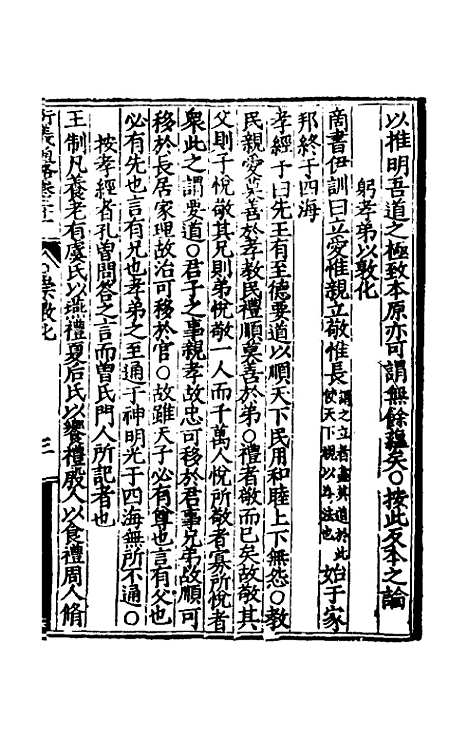 以推明吾道之極致本原亦可謂無餘蘊矣○按此反本之論
躬孝弟以敦化
商書伊訓曰立愛惟親立敬惟長謂之立者盡其道於此使天下視以為法也始于家
邦終于四海
孝經子曰先王有至德要道以順天下民用和睦上下無怨○教
民親愛莫善於孝教民禮順莫善於弟○禮者敬而已矣故敬其
父則子悅敬其兄則弟悅敬一人而千萬人悅所敬者寡所悅者
衆此之謂要道○君子之事親孝故忠可移於君事兄弟故順可
移於長居家理故治可移於官○故雖天子必有尊也言有父也
必有先也言有兄也孝弟之至通于神明光于四海無所不通○
按孝經者孔曾問答之言而曾氏門人所記者也
王制凡養老有虞氏以燕禮夏后氏以饗禮殷人以食禮周人脩
衍義
崇敎化
三